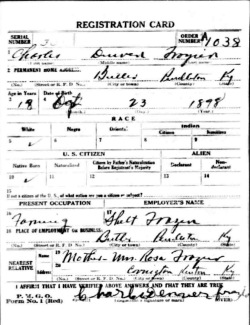 REGISTRATION CARD
SERIAL NUMBER 3 ORDER NUMBER A 1038
Charles Denver Frazier
(Middle name)
2 PERMANENT HOME ADDRESS:
Butler Pendleton Ky
(No.) (Street or R. F. D. No.) (City or town) (County) (State)
Age in Years Date of Birth
18 23 1898
RACE
White Negro Oriental Indian
Citizen Noncitizen
5 6 7 8 9
U. S. CITIZEN ALIEN
Native Born Naturalized Citizen by Father's Naturalization Before Registrant's Majority Declarant Non-declarant
10 11 12 13 14
15
If not a citizen of the U. S., of what nation are you a citizen or subject?
PRESENT OCCUPATION EMPLOYER'S NAME
Farming Frazier
18 PLACE OF EMPLOYMENT OR BUSINESS:
Butler Pendleton Ky
(No.) (Street or R. F. D. No.) (City or town) (County) (State)
NEAREST RELATIVE
Mother - Mrs. Rosa Frazier
Covington Kenton Ky
(No.) (Street or R. F. D. No.) (City or town) (County) (State)
I AFFIRM THAT I HAVE VERIFIED ABOVE ANSWERS AND THAT THEY ARE TRUE
P. M. G. O.
Form No. 1 (Red)
Charlie Denver Frazier